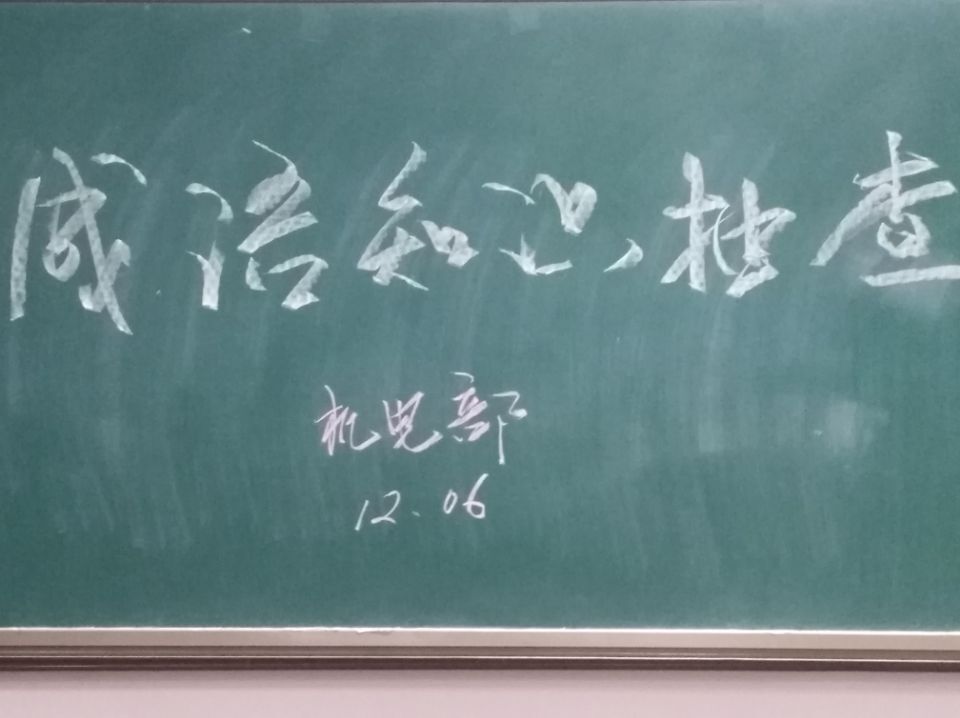 成语知识抽查
机电部
12.06